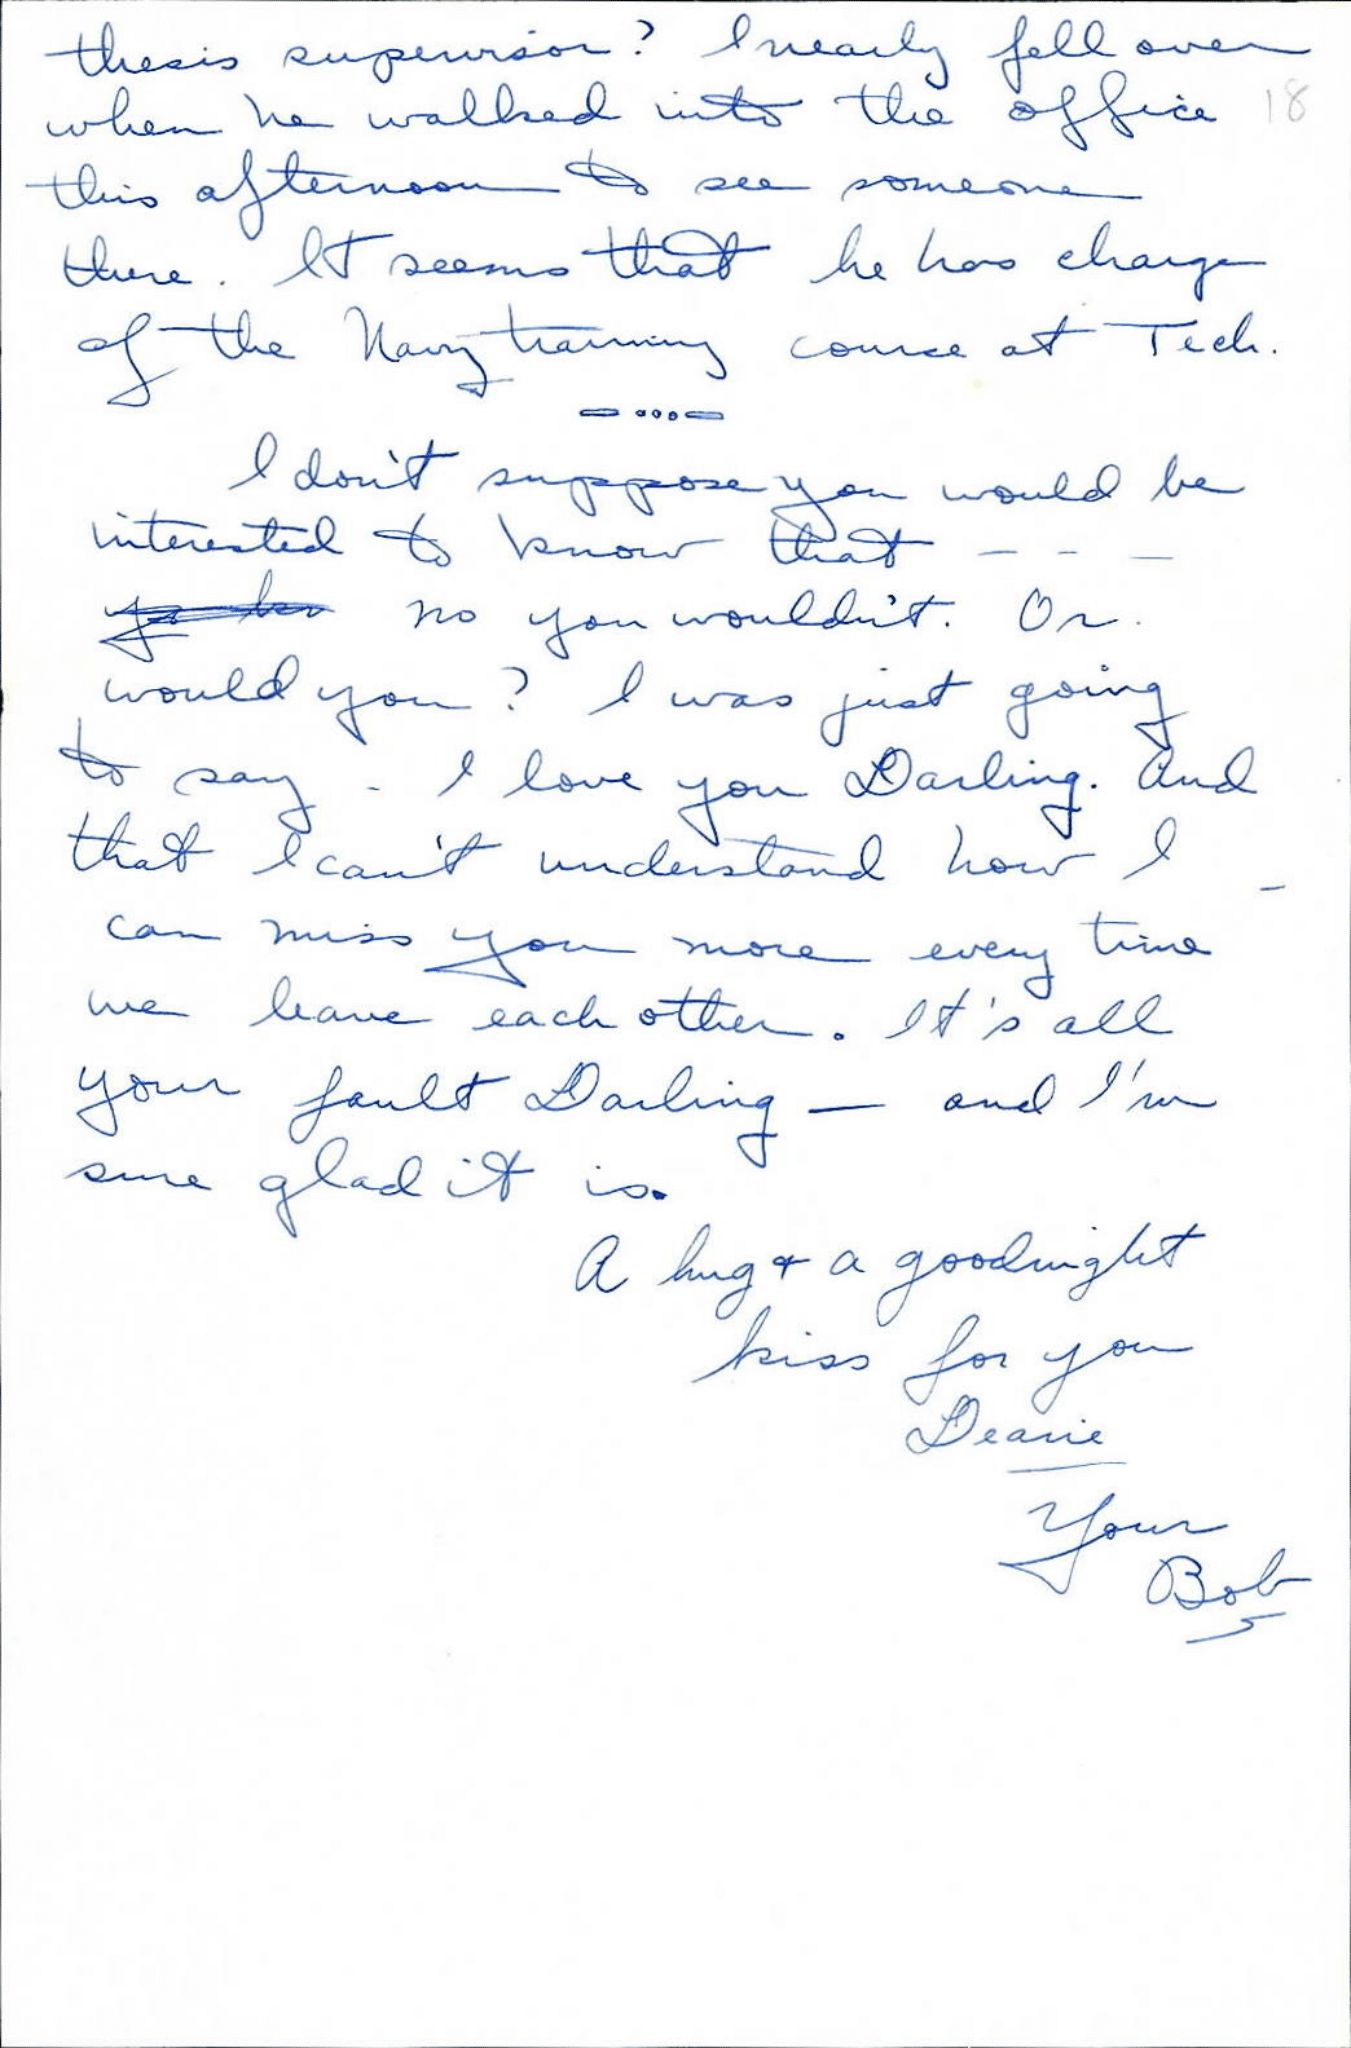 thesis supervisor? I nearly fell over
when he walked into the office 18
this afternoon to see someone
there. It seems that he has charge
of the Navy training course at Tech.
I don't suppose you would be
interested to know that - - -
no you wouldn't. Or
would you? I was just going
to say - I love you Darling. And
that I can't understand how I -
can miss you more every time
we leave each other. It's all
your fault Darling — and I'm
sure glad it is.
A hug & a goodnight
kiss for you
Dearie
Your
Bob